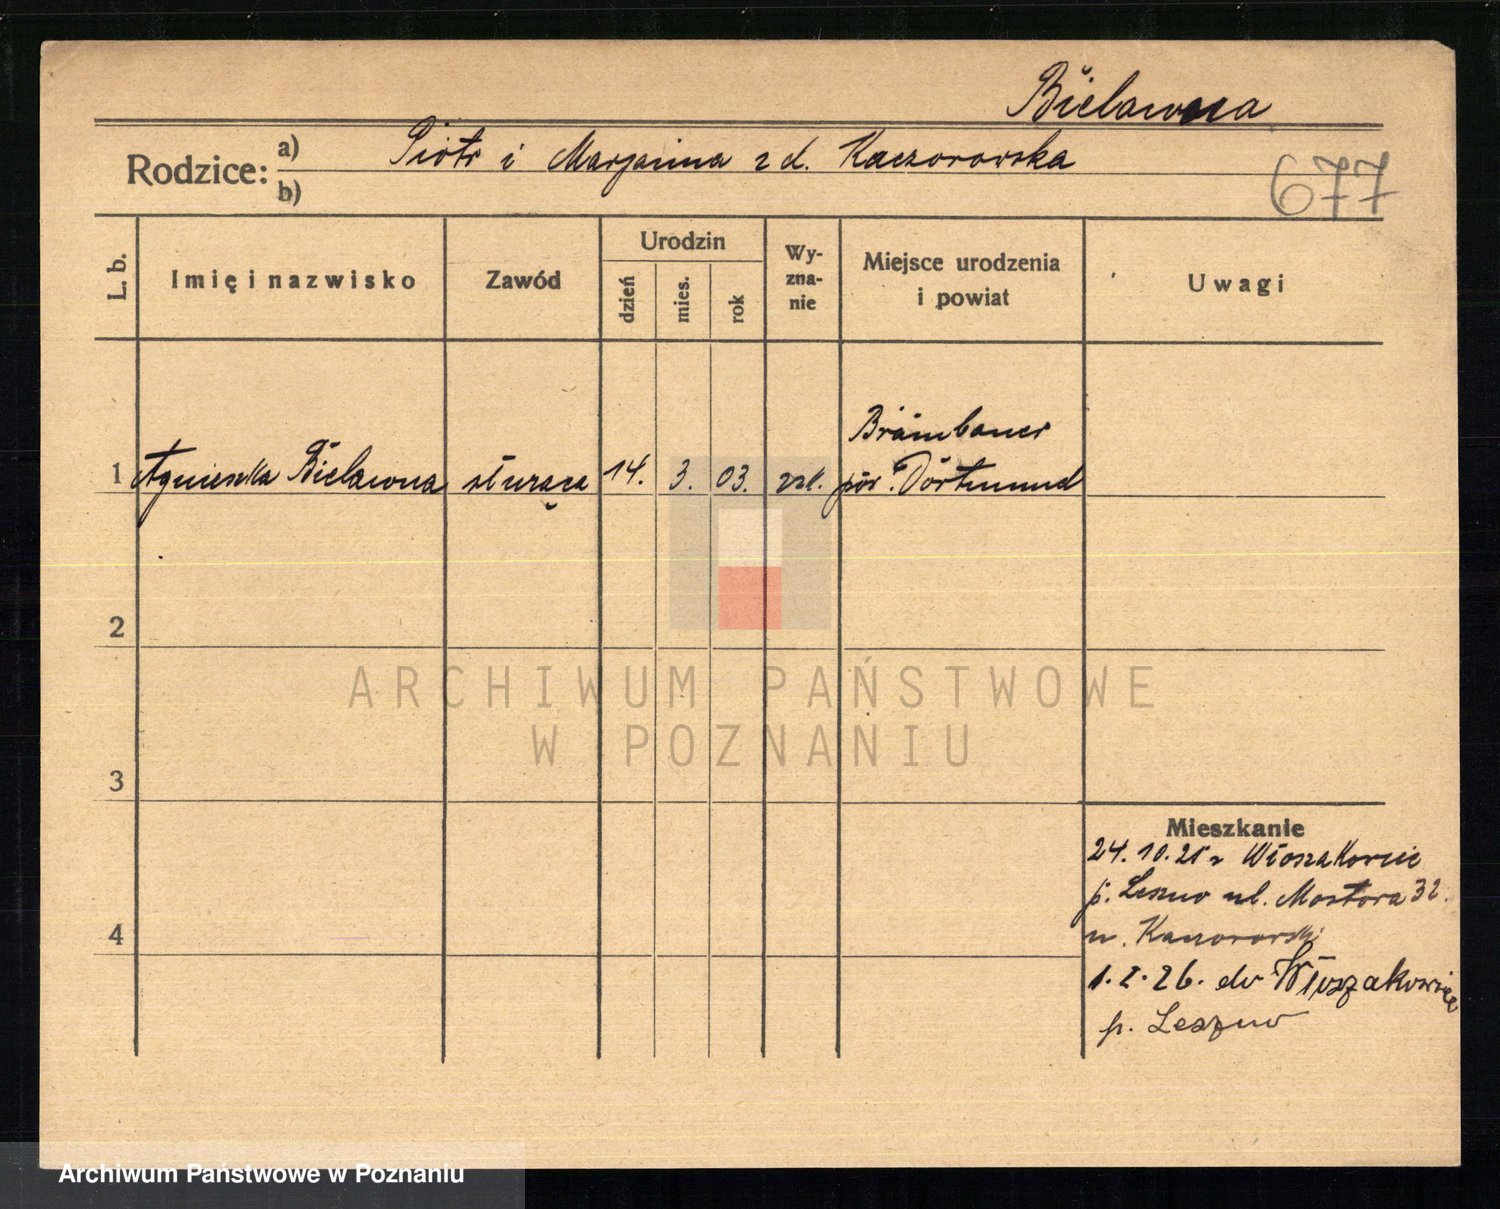 Bielawna
Rodzice: a) Piotr i Marjanna z d. Kaczorowska
b)
677
L. b.
Imię i nazwisko
Zawód
Urodzin
dzień
mies.
rok
Wy-
zna-
nie
Miejsce urodzenia
i powiat
Uwagi
1 Agnieszka Bielawna służąca 14. 3. 03. rzk. Brambauer
pow. Dortmund
2
3
4
ARCHIWUM PAŃSTWOWE
W POZNANIU
Mieszkanie
24.10.25 z Włoszakowic
p. Leszno ul. Mostowa 32.
u. Kaczorowski
1.2.26. do Włoszakowice
p. Leszno
Archiwum Państwowe w Poznaniu